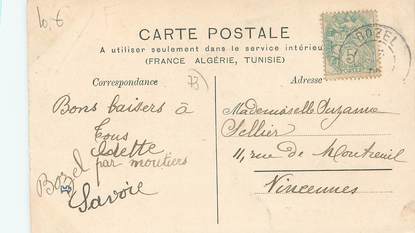 10.€
CARTE POSTALE
A utiliser seulement dans le service intérieur
(FRANCE ALGÉRIE, TUNISIE)
BOZEL
Correspondance
73)
Adresse
Bons baisers à
Tous
Odette
Bozel
par moutiers
Savoie
Mademoiselle Suzanne
Sellier
11, rue de Montreuil
Vincennes